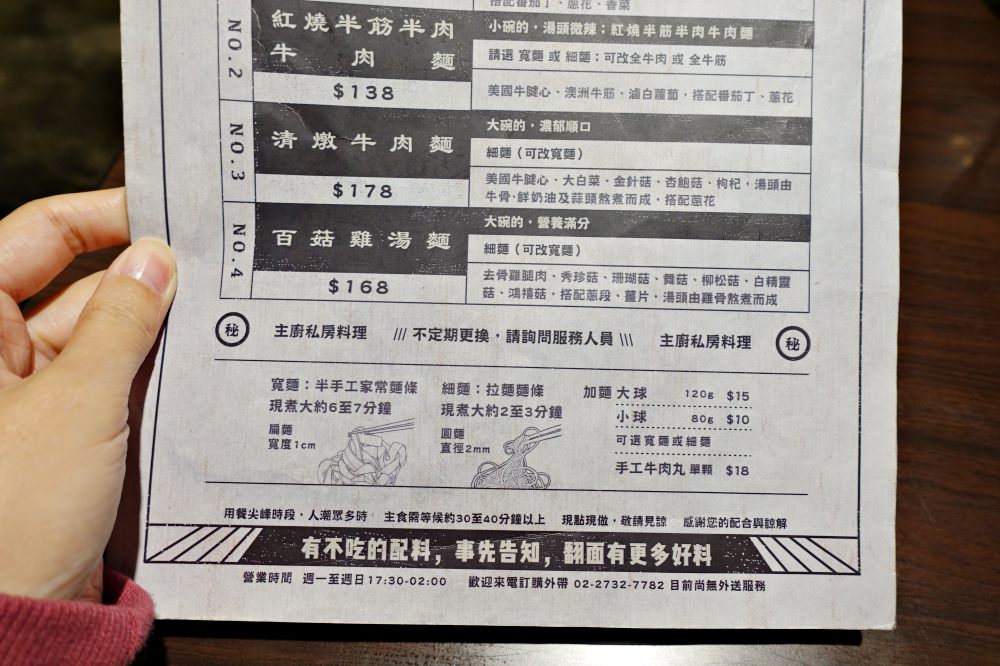 搭配番茄丁、蔥花、香菜
NO.2
紅燒半筋半肉
牛肉麵
$138
小碗的‧湯頭微辣：紅燒半筋半肉牛肉麵
請選 寬麵 或 細麵：可改全牛肉 或 全牛筋
美國牛腱心、澳洲牛筋、滷白蘿蔔，搭配番茄丁、蔥花
NO.3
清燉牛肉麵
$178
大碗的‧濃郁順口
細麵（可改寬麵）
美國牛腱心、大白菜、金針菇、杏鮑菇、枸杞，湯頭由
牛骨、鮮奶油及蒜頭熬煮而成，搭配蔥花
NO.4
百菇雞湯麵
$168
大碗的‧營養滿分
細麵（可改寬麵）
去骨雞腿肉、秀珍菇、珊瑚菇、舞菇、柳松菇、白精靈
菇、鴻禧菇，搭配蔥段、薑片，湯頭由雞骨熬煮而成
秘 主廚私房料理 /// 不定期更換，請詢問服務人員 \\\ 主廚私房料理 秘
寬麵：半手工家常麵條
現煮大約6至7分鐘
扁麵
寬度1cm
細麵：拉麵麵條
現煮大約2至3分鐘
圓麵
直徑2mm
加麵 大球 120g $15
小球 80g $10
可選寬麵或細麵
手工牛肉丸 單顆 $18
用餐尖峰時段，人潮眾多時 主食需等候約30至40分鐘以上 現點現做，敬請見諒 感謝您的配合與諒解
有不吃的配料，事先告知，翻面有更多好料
營業時間 週一至週日17:30-02:00 歡迎來電訂購外帶 02-2732-7782 目前尚無外送服務